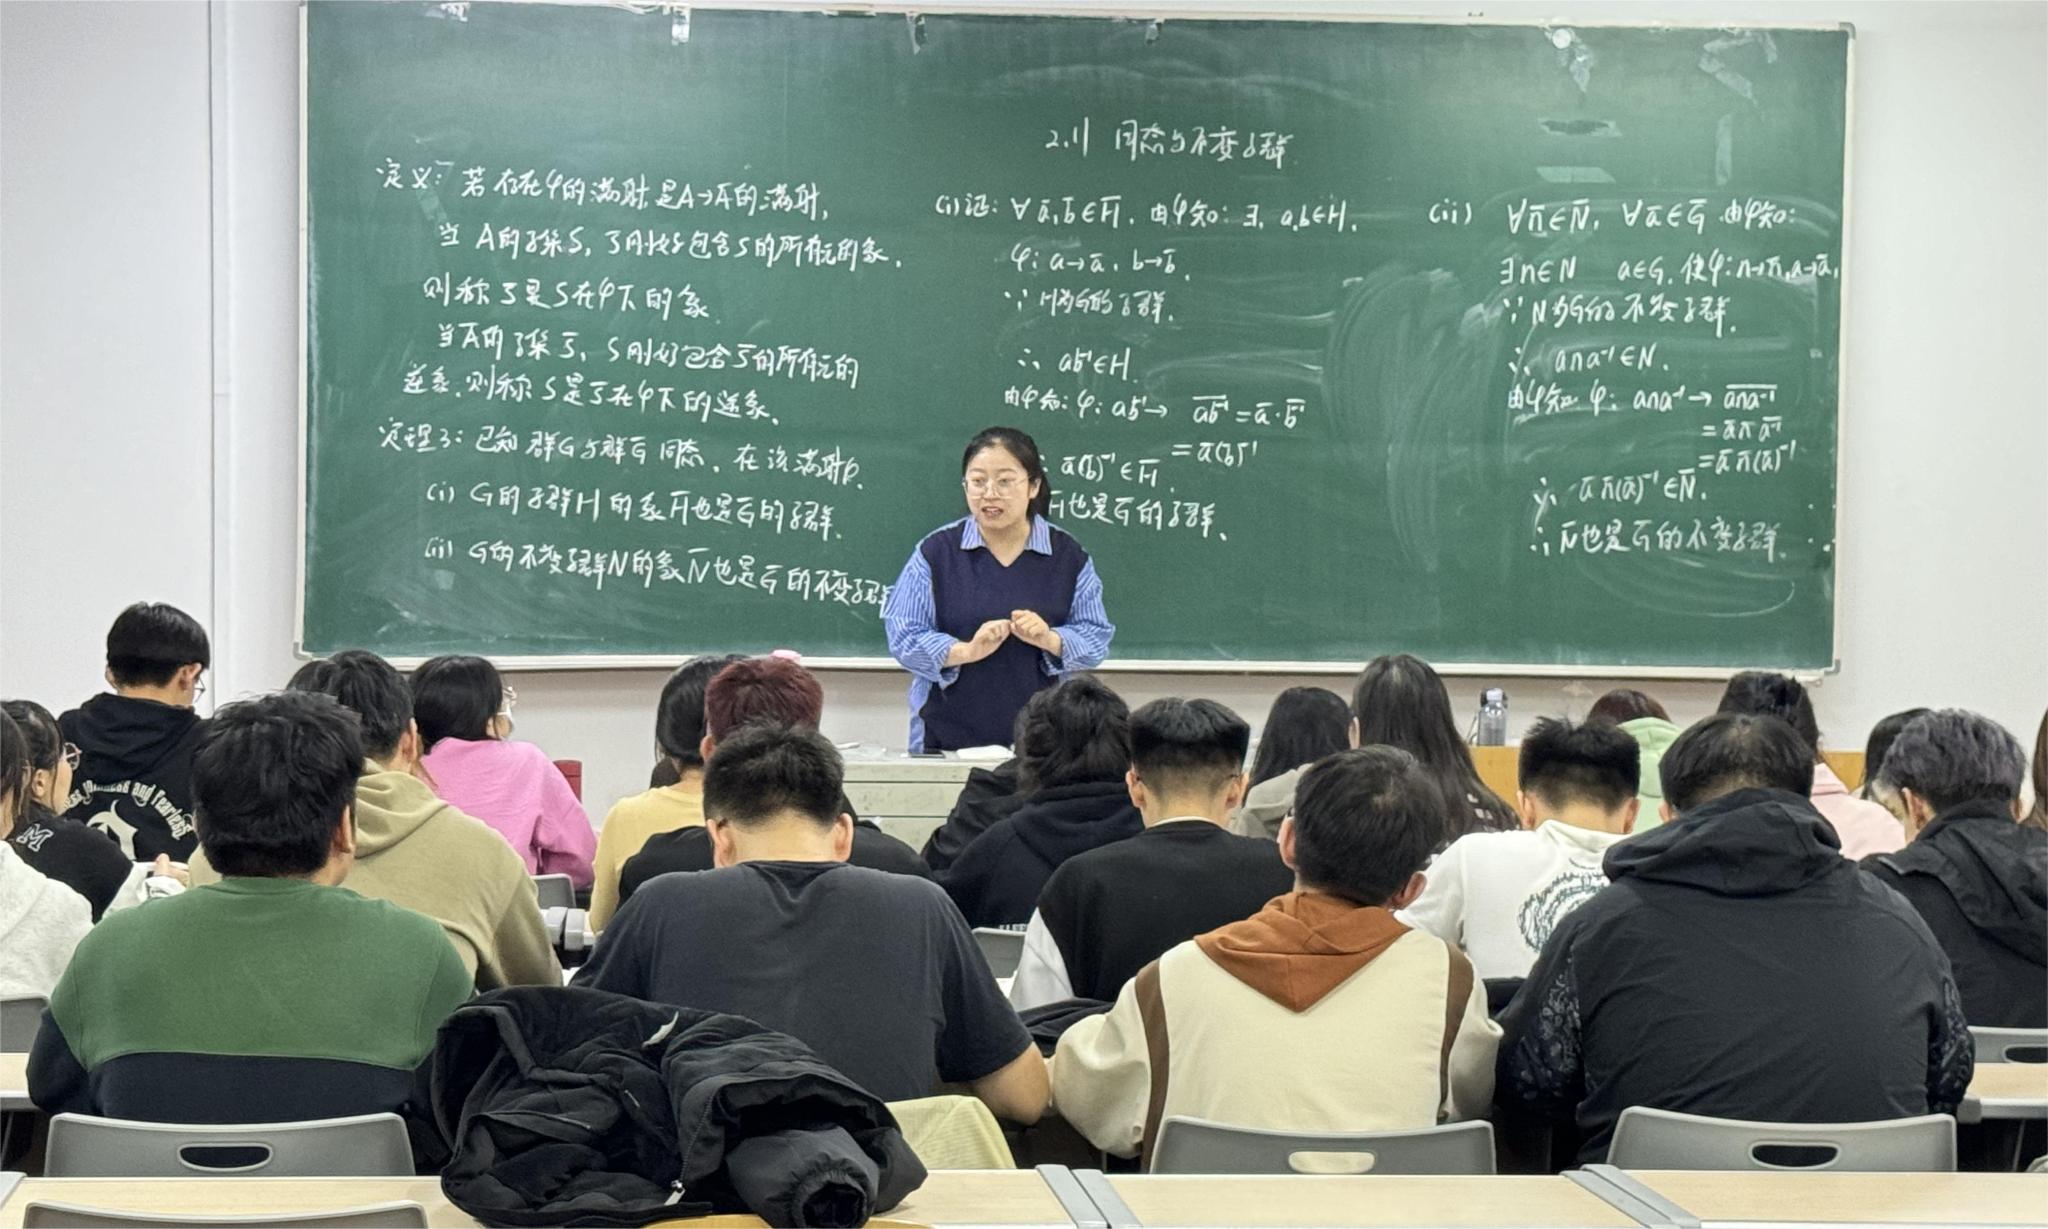 2.11 同态与不变子群
定义: 若存在φ的满射,是A→Ā的满射,
当 A的子集S, S̄刚好包含S的所有元的象.
则称 S̄是S在φ下的象.
当Ā的子集S̄, S刚好包含S̄的所有元的
逆象.则称S是S̄在φ下的逆象.
定理3: 已知群G与群Ḡ同态. 在该满射下.
(i) G的子群H的象H̄也是Ḡ的子群.
(ii) G的不变子群N的象N̄也是Ḡ的不变子群
(i)证: ∀ ā,b̄∈H̄. 由φ知: ∃, a,b∈H.
φ: a→ā, b→b̄.
∵ H为G的子群.
∴ ab⁻¹∈H.
由φ知: φ: ab⁻¹→ \overline{ab⁻¹} = ā·\overline{b⁻¹}
= ā(b̄)⁻¹
ā(b̄)⁻¹∈H̄.
H̄也是Ḡ的子群.
(ii) ∀n̄∈N̄, ∀ā∈Ḡ.由φ知:
∃n∈N a∈G, 使φ: n→n̄,a→ā.
∵ N为G的不变子群.
∴ ana⁻¹∈N.
由φ知 φ: ana⁻¹→ \overline{ana⁻¹}
= ā n̄ \overline{a⁻¹}
= ā n̄(ā)⁻¹
∴ ā n̄(ā)⁻¹∈N̄.
∴ N̄也是Ḡ的不变子群.
and Fearless
M